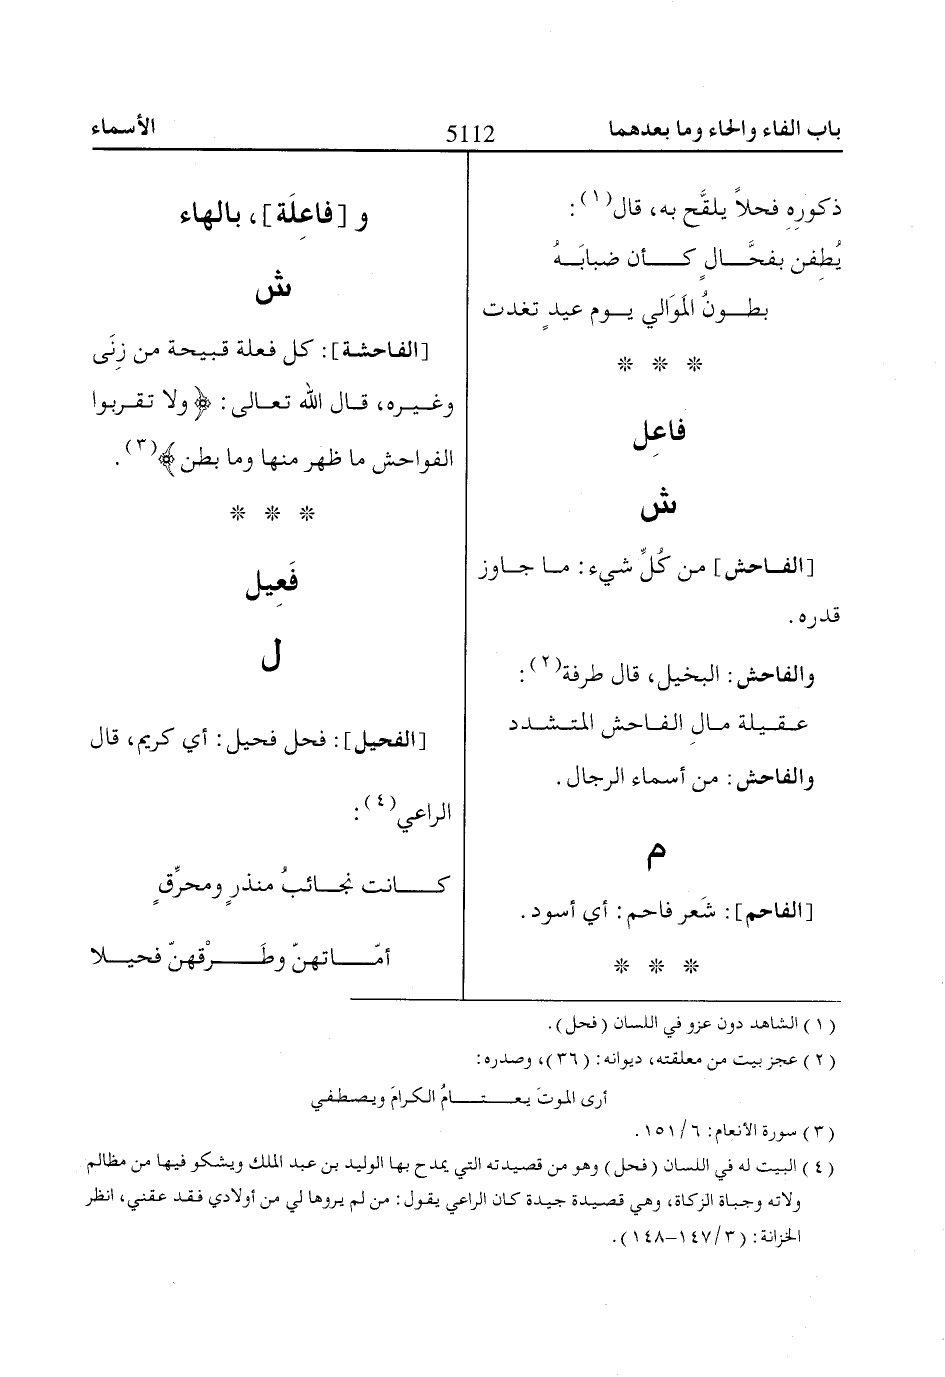 باب الفاء والحاء وما بعدهما
5112
الأسماء
ذكورِهِ فحلاً يلقَّح به، قال(١):
يُطفِن بفحَّـــالٍ كـــأن ضبابَـــهُ
بطـــونُ المَوَالي يـــوم عيدٍ تغدت
* * *
فاعِل
ش
[الفـاحش] من كُلِّ شيء: مـا جـاوز
قدره.
والفاحش: البخيل، قال طرفة(٢):
عـقـيلة مـالِ الفـاحش المتـشـدد
والفاحش: من أسماء الرجال.
م
[الفاحم]: شَعر فاحم: أي أسود.
* * *
و [فاعِلَة]، بالهاء
ش
[الفاحشة]: كل فعلة قبيحة من زِنَى
وغـيـره، قـال الله تعـالى: ﴿ ولا تقـربوا
الفواحش ما ظهر منها وما بطن ﴾(٣).
* * *
فَعِيل
ل
[الفحيل]: فحل فحيل: أي كريم، قال
الراعي(٤):
كـــانت نجـائبُ منذرٍ ومحرِّقٍ
أمّـــاتهنّ وطَـــرْقهنّ فحيـــلا
(١) الشاهد دون عزو في اللسان (فحل).
(٢) عجز بيت من معلقته، ديوانه: (٣٦)، وصدره:
أرى الموتَ يعـــتـــامُ الكرامَ ويصطفي
(٣) سورة الأنعام: ٦/ ١٥١.
(٤) البيت له في اللسان (فحل) وهو من قصيدته التي يمدح بها الوليد بن عبد الملك ويشكو فيها من مظالم
ولاته وجباة الزكاة، وهي قصيدة جيدة كان الراعي يقول: من لم يروها لي من أولادي فقد عقني، انظر
الخزانة: (٣/ ١٤٧-١٤٨).